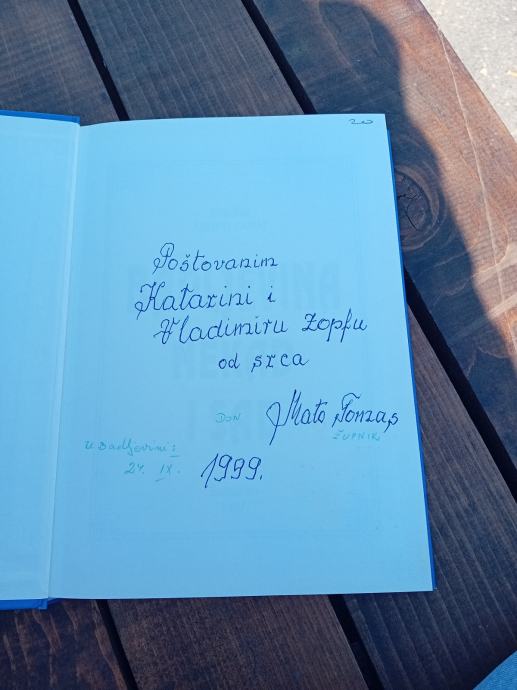 20
Poštovanim
Katarini i
Vladimiru Zopfu
od srca
DON Mato Fonzas
ŽUPNIK
U Badljevini:
24. IX. 1999.